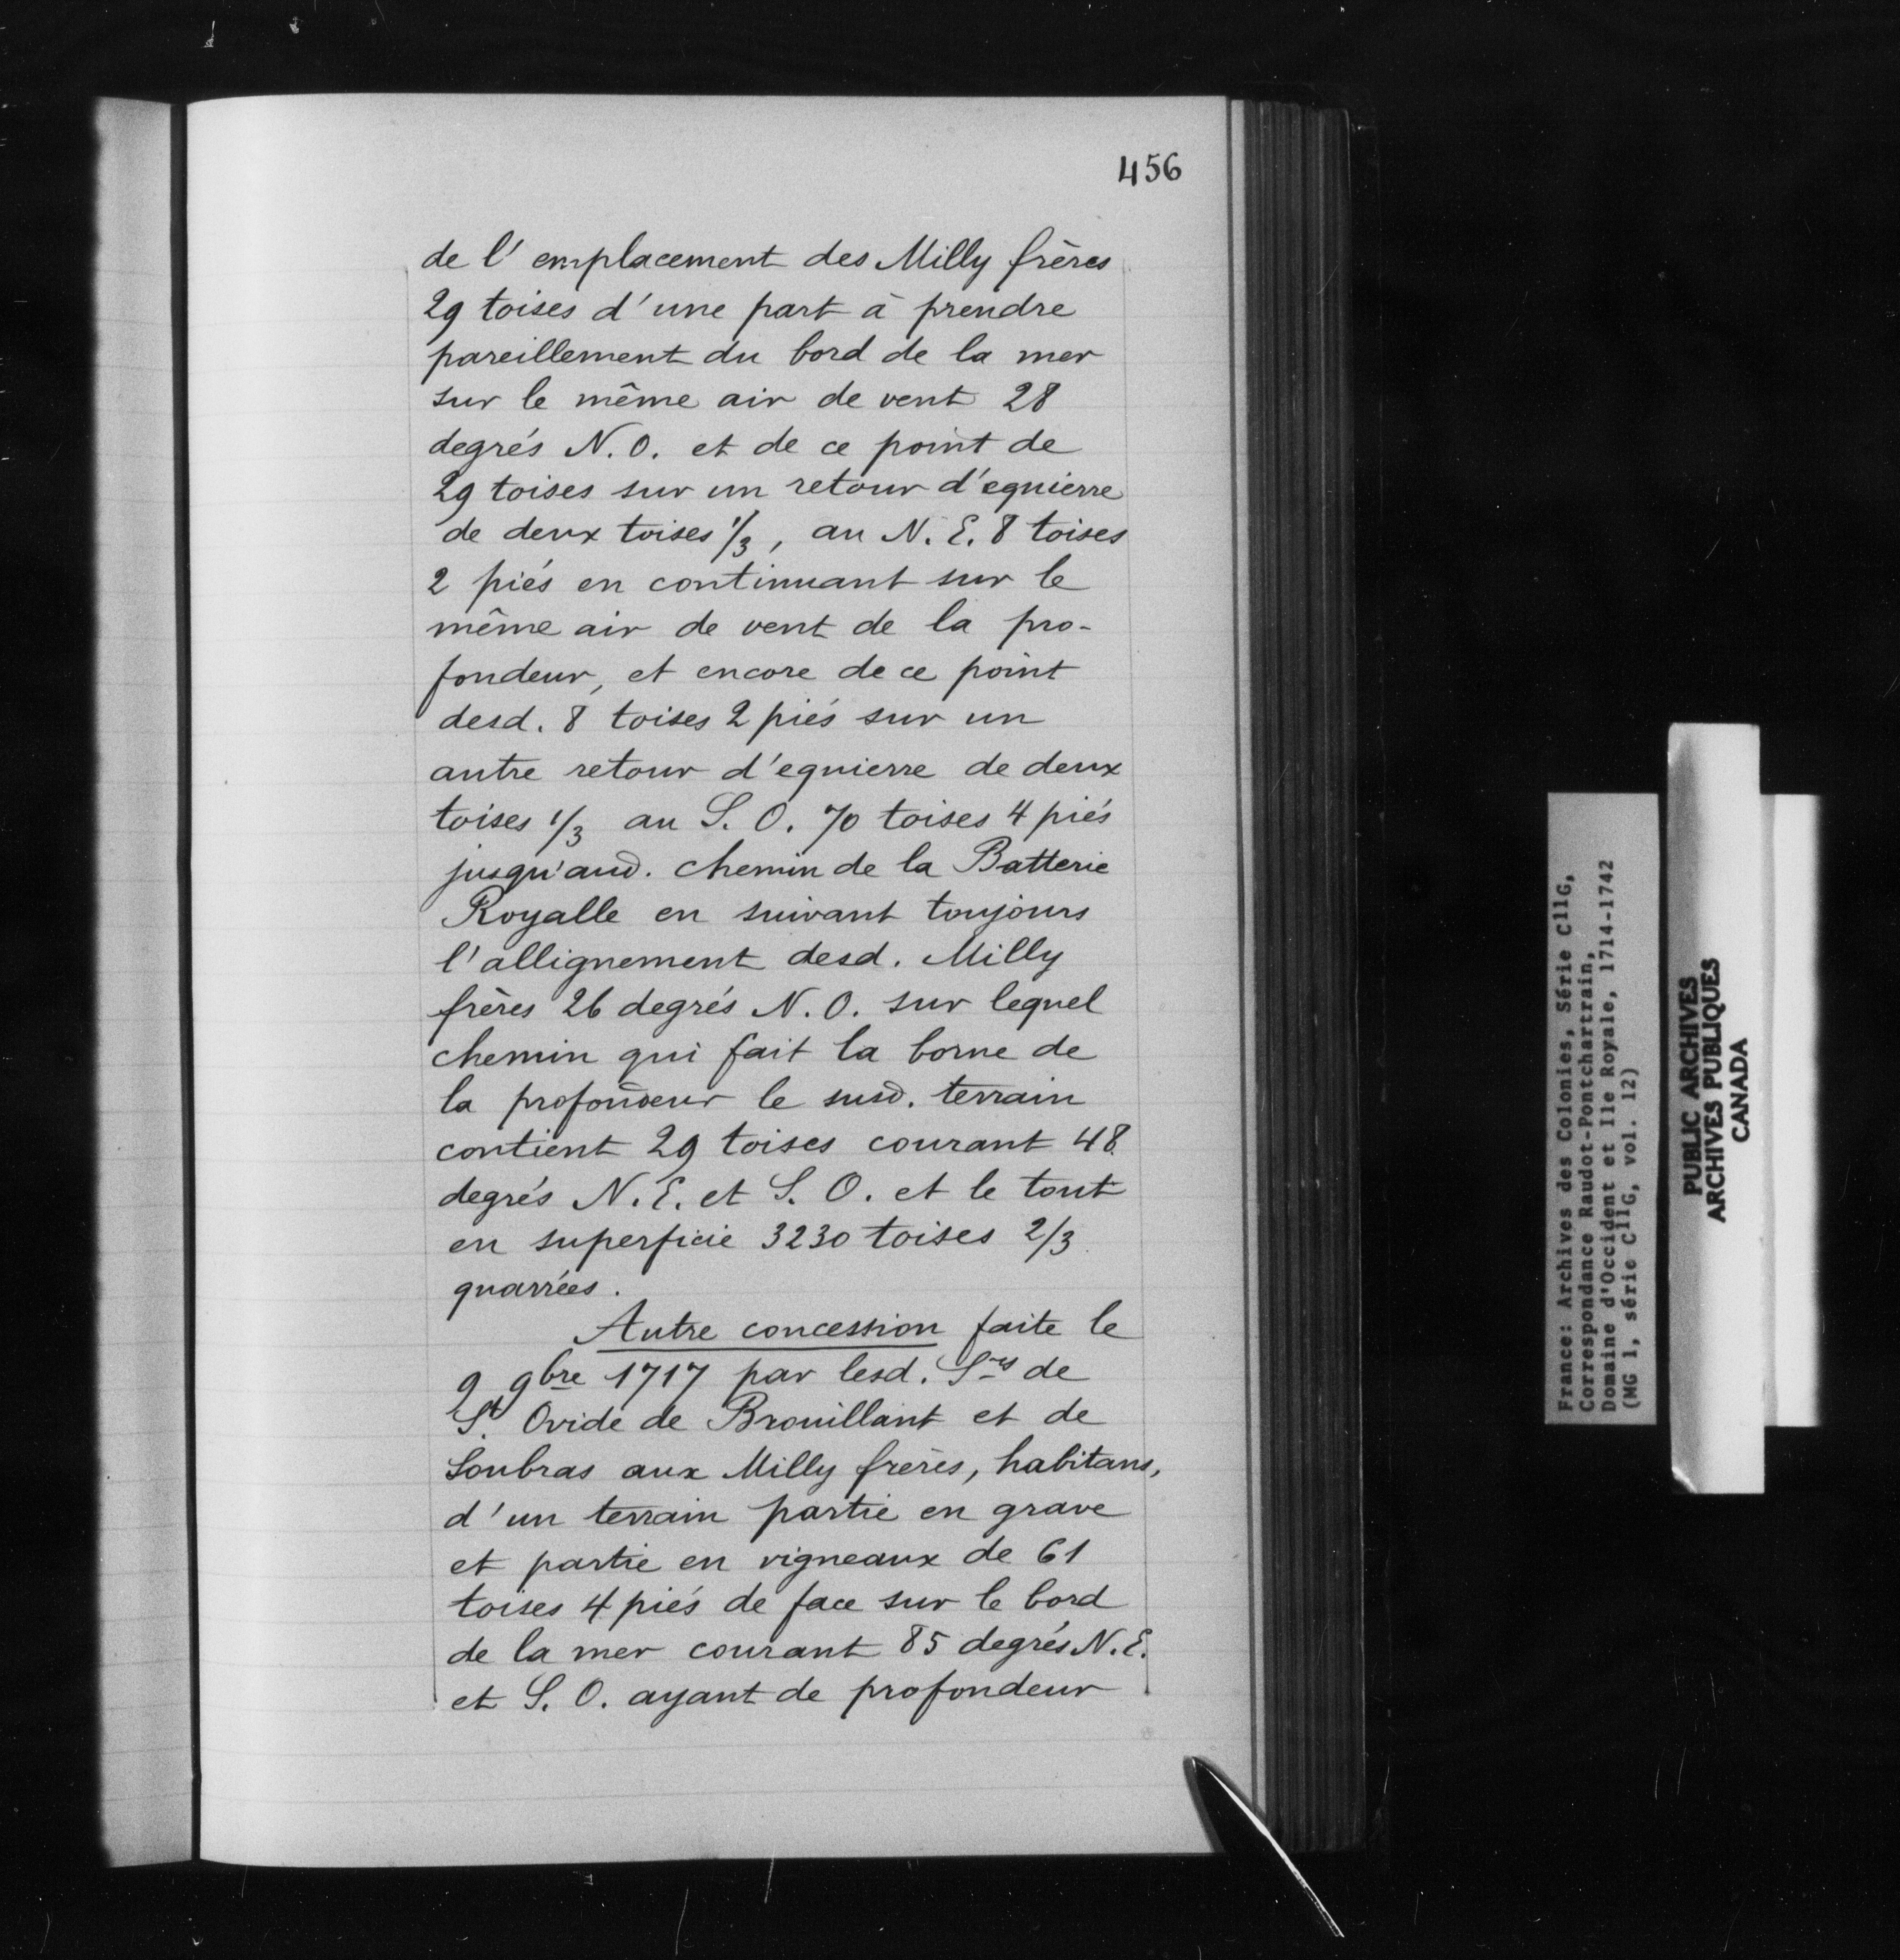 456
de l' emplacement des Milly frères
29 toises d'une part à prendre
pareillement du bord de la mer
sur le même air de vent 28
degrés N. O. et de ce point de
29 toises sur un retour d'equierre
de deux toises 1/3, au N. E. 8 toises
2 piés en continuant sur le
même air de vent de la pro-
fondeur, et encore de ce point
desd. 8 toises 2 piés sur un
autre retour d'equierre de deux
toises 1/3 au S. O. 70 toises 4 piés
jusqu'aud. chemin de la Batterie
Royalle en suivant toujours
l'allignement desd. Milly
frères 26 degrés N. O. sur lequel
chemin qui fait la borne de
la profondeur le susd. terrain
contient 29 toises courant 48
degrés N. E. et S. O. et le tout
en superficie 3230 toises 2/3
quarrées.
Autre concession faite le
9 9bre 1717 par lesd. Srs de
St. Ovide de Brouillant et de
Soubras aux Milly frères, habitans,
d'un terrain partie en grave
et partie en vigneaux de 61
toises 4 piés de face sur le bord
de la mer courant 85 degrés N. E.
et S. O. ayant de profondeur
France: Archives des Colonies, Série C11G,
Correspondance Raudot-Pontchartrain,
Domaine d'Occident et Ile Royale, 1714-1742
(MG 1, série C11G, vol. 12)
PUBLIC ARCHIVES
ARCHIVES PUBLIQUES
CANADA